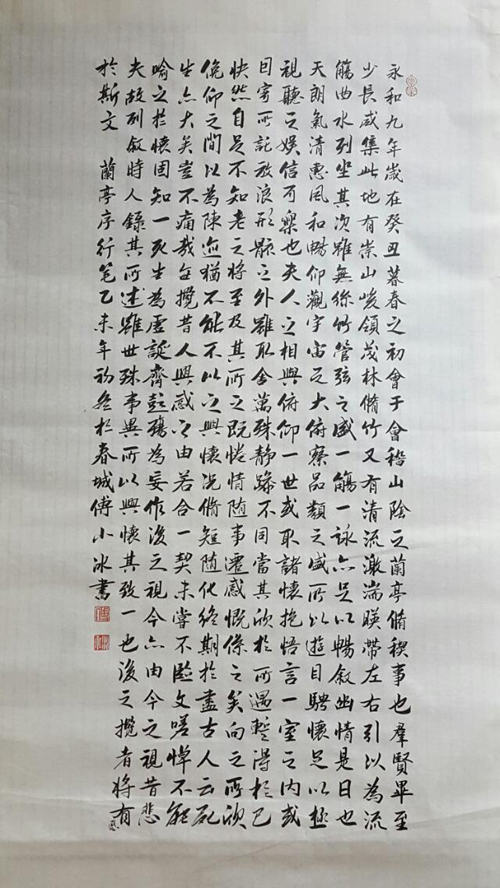 永和九年歲在癸丑暮春之初會于會稽山陰之蘭亭脩稧事也羣賢畢至
少長咸集此地有崇山峻領茂林脩竹又有清流激湍暎帶左右引以為流
觴曲水列坐其次雖無絲竹管弦之盛一觴一詠亦足以暢敘幽情是日也
天朗氣清惠風和暢仰觀宇宙之大俯察品類之盛所以遊目騁懷足以極
視聽之娛信可樂也夫人之相與俯仰一世或取諸懷抱悟言一室之內或
因寄所託放浪形骸之外雖取舍萬殊靜躁不同當其欣於所遇暫得於己
快然自足不知老之將至及其所之既惓情随事遷感慨係之矣向之所欣
俛仰之間以為陳迹猶不能不以之興懷況脩短随化終期於盡古人云死
生亦大矣豈不痛哉每攬昔人興感之由若合一契未嘗不臨文嗟悼不能
喻之於懷固知一死生為虛誕齊彭殤為妄作後之視今亦由今之視昔悲
夫故列敘時人錄其所述雖世殊事異所以興懷其致一也後之攬者將有感
於斯文 蘭亭序行笔乙未年初冬於春城傅小冰書